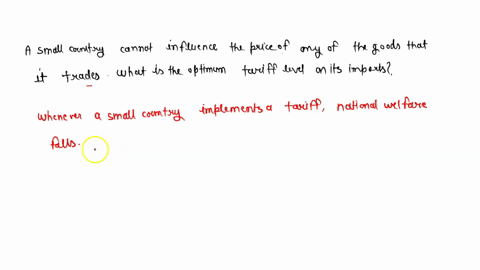 A small country cannot influence the price of any of the goods that
it trades. What is the optimum tariff level on its imports?
Whenever a small country implements a tariff, national welfare
falls.